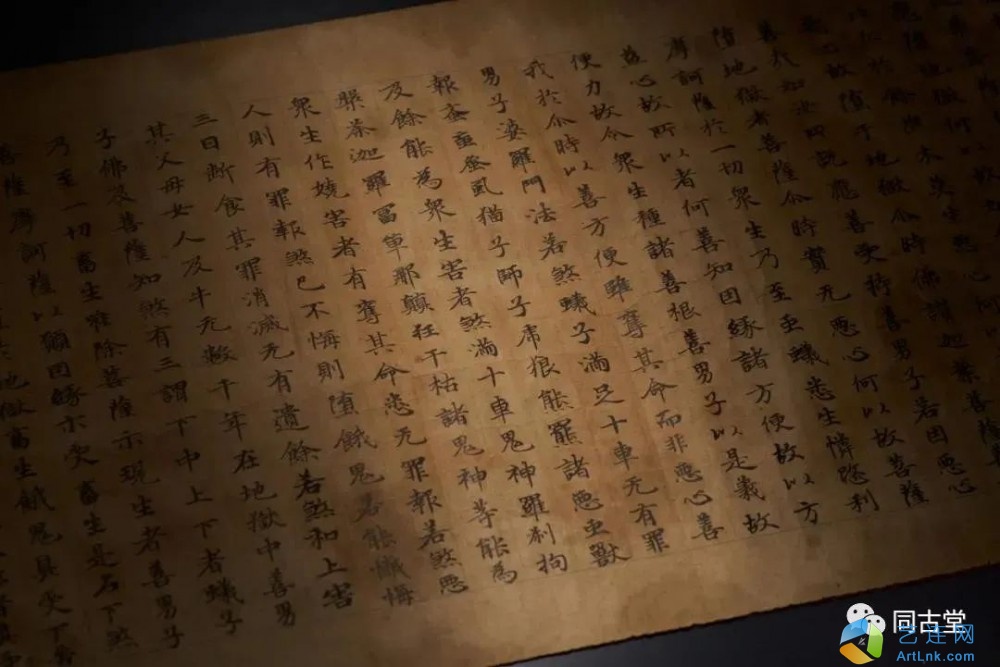 善哉如汝所說應善受持善男子若因惡心
墮地獄者菩薩尒時實无惡心何以故菩薩
摩訶薩於一切衆生乃至虫蟻悉生憐愍利
益心故所以者何善知因緣諸方便故以方
便力故令衆生種諸善根善男子以是義故
我於尒時以善方便雖奪其命而非惡心善
男子婆羅門法若煞蟻子滿足十車无有罪
報蚤䖟蚤虱猫子師子虎狼熊羆諸惡虫獸
及餘能為衆生害者煞滿十車鬼神羅刹拘
荼迦羅富單那顛狂干枯諸鬼神等能為
衆生作嬈害者有奪其命悉无罪報若煞惡
人則有罪報煞已不悔則墮餓鬼若能懺悔
三日斷食其罪消滅无有遺餘若煞和上害
其父母女人及牛无數千年在地獄中善男
子佛及菩薩知煞有三謂下中上下者蟻子
乃至一切畜生唯除菩薩示現生者善男子
菩薩摩訶薩以願因緣示受畜生是名下煞
地獄畜生餓鬼具受下苦
同古堂
艺连网
ArtLnk.com